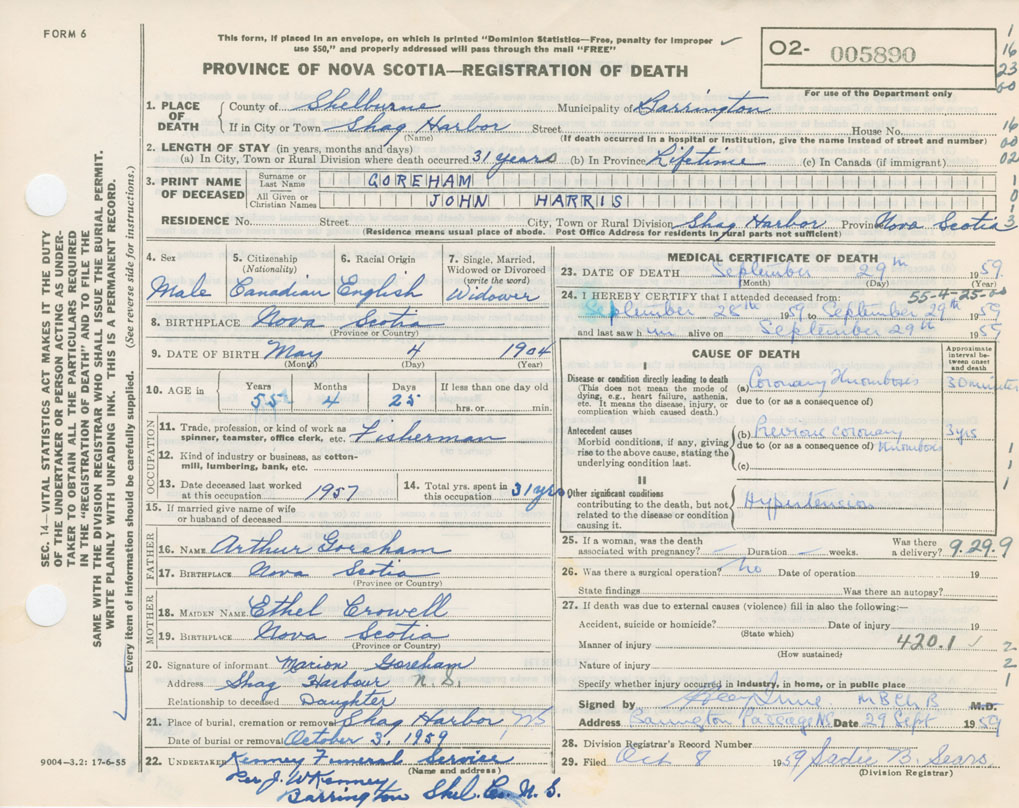 FORM 6
This form, if placed in an envelope, on which is printed "Dominion Statistics—Free, penalty for improper
use $50," and properly addressed will pass through the mail "FREE"
O2- 005890
For use of the Department only
1
16
23
00
PROVINCE OF NOVA SCOTIA—REGISTRATION OF DEATH
1. PLACE OF DEATH
County of Shelburne Municipality of Barrington
If in City or Town Shag Harbor Street House No.
(Name) (If death occurred in a hospital or institution, give the name instead of street and number)
16
00
02
2. LENGTH OF STAY (in years, months and days)
(a) In City, Town or Rural Division where death occurred 31 years (b) In Province Lifetime (c) In Canada (if immigrant)
3. PRINT NAME OF DECEASED
Surname or Last Name GOREHAM
All Given or Christian Names JOHN HARRIS
1
0
1
3
RESIDENCE No. Street City, Town or Rural Division Shag Harbor Province Nova Scotia
(Residence means usual place of abode. Post Office Address for residents in rural parts not sufficient)
SEC. 14—VITAL STATISTICS ACT MAKES IT THE DUTY
OF THE UNDERTAKER OR PERSON ACTING AS UNDER-
TAKER TO OBTAIN ALL THE PARTICULARS REQUIRED
IN THE "REGISTRATION OF DEATH" AND TO FILE THE
SAME WITH THE DIVISION REGISTRAR WHO SHALL ISSUE THE BURIAL PERMIT.
WRITE PLAINLY WITH UNFADING INK. THIS IS A PERMANENT RECORD.
Every item of information should be carefully supplied. (See reverse side for instructions.)
4. Sex Male
5. Citizenship (Nationality) Canadian
6. Racial Origin English
7. Single, Married, Widowed or Divorced (write the word) Widower
8. BIRTHPLACE Nova Scotia
(Province or Country)
9. DATE OF BIRTH May 4 1904
(Month) (Day) (Year)
10. AGE in Years 55 Months 4 Days 25 If less than one day old hrs. or min.
OCCUPATION
11. Trade, profession, or kind of work as
spinner, teamster, office clerk, etc. Fisherman
12. Kind of industry or business, as cotton-
mill, lumbering, bank, etc.
13. Date deceased last worked
at this occupation 1957
14. Total yrs. spent in
this occupation 31 yrs
15. If married give name of wife
or husband of deceased
FATHER
16. NAME Arthur Goreham
17. BIRTHPLACE Nova Scotia
(Province or Country)
MOTHER
18. MAIDEN NAME Ethel Crowell
19. BIRTHPLACE Nova Scotia
(Province or Country)
20. Signature of informant Marion Goreham
Address Shag Harbour N.S.
Relationship to deceased Daughter
21. Place of burial, cremation or removal Shag Harbor NS
Date of burial or removal October 3, 1959
22. UNDERTAKER Kenney Funeral Service
(Name and address)
Per J. W Kenney
Barrington Shel. Co. N. S.
9004-3.2: 17-6-55
MEDICAL CERTIFICATE OF DEATH
23. DATE OF DEATH September 29th 1959.
(Month) (Day) (Year)
24. I HEREBY CERTIFY that I attended deceased from: 55-4-25-00
September 28th 1959 to September 29th 1959
and last saw him alive on September 29th 1959
CAUSE OF DEATH
Approximate interval between onset and death
I
Disease or condition directly leading to death
(This does not mean the mode of
dying, e.g., heart failure, asthenia,
etc. It means the disease, injury, or
complication which caused death.)
(a) Coronary thrombosis 30 minutes
due to (or as a consequence of)
Antecedent causes
Morbid conditions, if any, giving
rise to the above cause, stating the
underlying condition last.
(b) Previous coronary 3 yrs
due to (or as a consequence of) thrombosis
(c)
1
1
1
II
Other significant conditions
contributing to the death, but not
related to the disease or condition
causing it.
Hypertension
25. If a woman, was the death
associated with pregnancy? Duration weeks. Was there
a delivery? 9.29.9
26. Was there a surgical operation? No Date of operation 19
State findings Was there an autopsy?
27. If death was due to external causes (violence) fill in also the following:—
Accident, suicide or homicide? Date of injury 19
(State which)
Manner of injury 420.1
(How sustained)
Nature of injury
Specify whether injury occurred in industry, in home, or in public place
2
2
1
Signed by MB Ch B M.D.
Address Barrington Passage NS Date 29 Sept 1959
28. Division Registrar's Record Number
29. Filed Oct 8 1959 Sadie B. Sears
(Division Registrar)